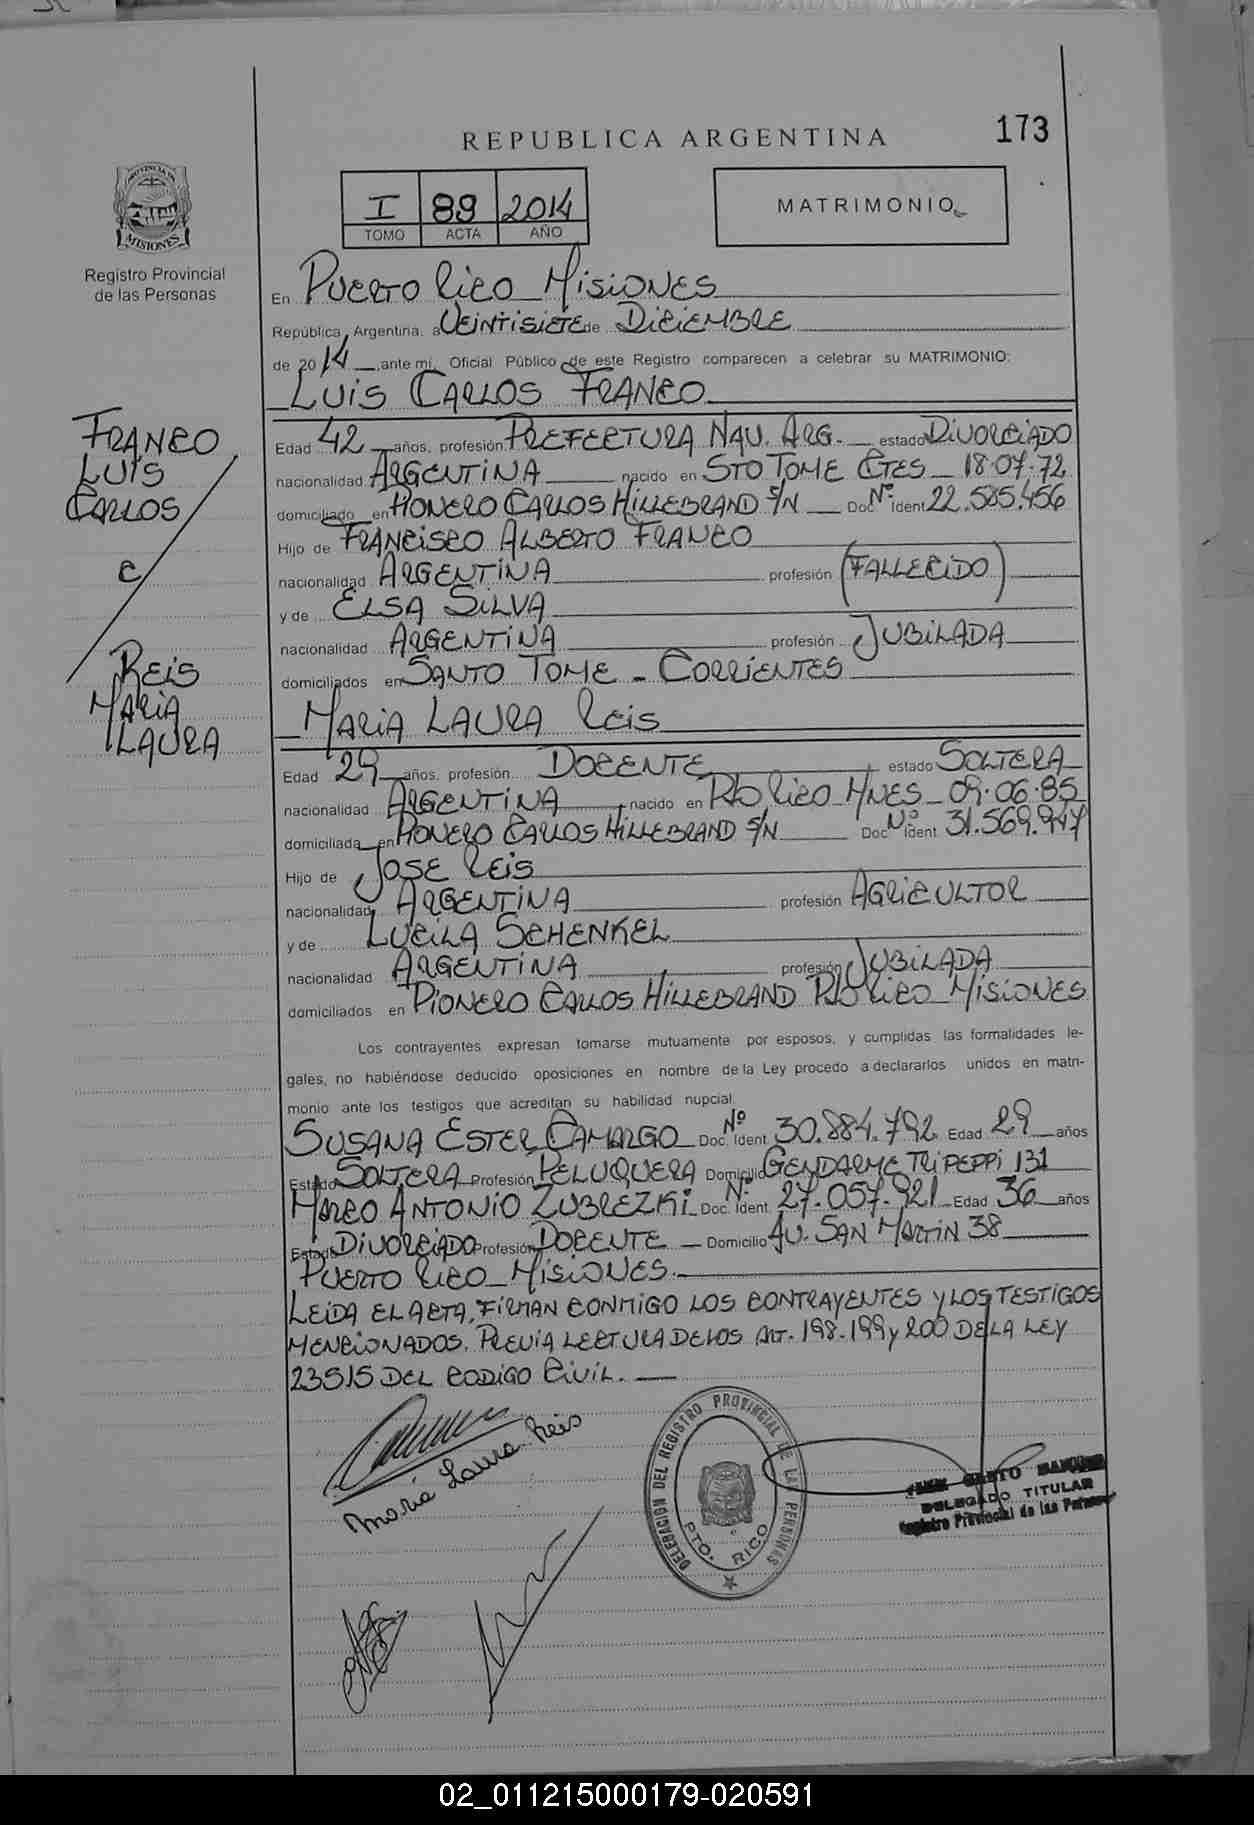 173
REPUBLICA ARGENTINA
PROVINCIA DE MISIONES
Registro Provincial
de las Personas
I 89 2014
TOMO ACTA AÑO
MATRIMONIO
En PUERTO RICO MISIONES
República Argentina, a VEINTISIETE de DICIEMBRE
de 2014, ante mí, Oficial Público de este Registro comparecen a celebrar su MATRIMONIO:
LUIS CARLOS FRANCO
FRANCO
LUIS
CARLOS
C/
REIS
MARIA
LAURA
Edad 42 años, profesión PREFECTURA NAV. ARG. estado DIVORCIADO
nacionalidad ARGENTINA nacido en STO TOME CTES 18.07.72
domiciliado en PIONERO CARLOS HILLEBRAND S/N Doc. Nº Ident 22.585.456
Hijo de FRANCISCO ALBERTO FRANCO
nacionalidad ARGENTINA profesión (FALLECIDO)
y de ELSA SILVA
nacionalidad ARGENTINA profesión JUBILADA
domiciliados en SANTO TOME - CORRIENTES
MARIA LAURA REIS
Edad 29 años, profesión DOCENTE estado SOLTERA
nacionalidad ARGENTINA nacido en PTO RICO MNES 09.06.85
domiciliada en PIONERO CARLOS HILLEBRAND S/N Doc. Nº Ident 31.569.947
Hijo de JOSE REIS
nacionalidad ARGENTINA profesión AGRICULTOR
y de LUCILA SCHENKEL
nacionalidad ARGENTINA profesión JUBILADA
domiciliados en PIONERO CARLOS HILLEBRAND PTO RICO MISIONES
Los contrayentes expresan tomarse mutuamente por esposos, y cumplidas las formalidades le-
gales, no habiéndose deducido oposiciones en nombre de la Ley procedo a declararlos unidos en matri-
monio ante los testigos que acreditan su habilidad nupcial.
SUSANA ESTER CAMARGO Doc. Nº Ident 30.884.792 Edad 29 años
Estado SOLTERA Profesión PELUQUERA Domicilio GENDARME TRIPEPPI 131
MARCO ANTONIO ZUBREZKI Doc. Nº Ident. 27.057.921 Edad 36 años
Estado DIVORCIADO Profesión DOCENTE Domicilio AV. SAN MARTIN 38
PUERTO RICO MISIONES.
LEIDA EL ACTA, FIRMAN CONMIGO LOS CONTRAYENTES Y LOS TESTIGOS
MENCIONADOS. PREVIA LECTURA DE LOS ART. 198-199 y 200 DE LA LEY
23515 DEL CODIGO CIVIL.
Maria Laura Reis
DELEGACION DEL REGISTRO PROVINCIAL DE LAS PERSONAS
PTO. RICO
DELEGADO TITULAR
Registro Provincial de las Personas
02_011215000179-020591